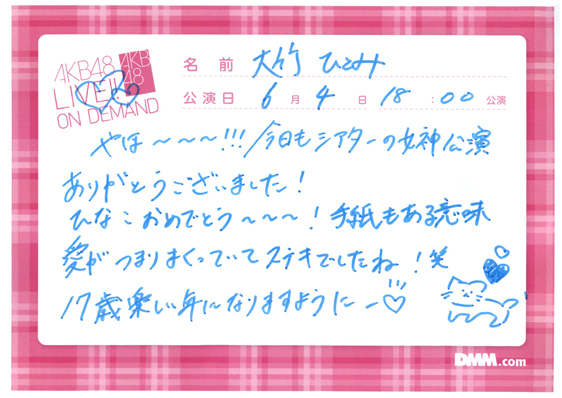 AKB48
LIVE!!
ON DEMAND
AKB
48
名前 大竹 ひとみ
公演日 6月4日 18:00公演
やほ〜〜〜!!!今日もシアターの女神公演
ありがとうございました!
ひなこおめでとう〜〜〜!手紙もある意味
愛がつまりまくっていてステキでしたね!笑
17歳楽しい年になりますようにー♡
DMM.com